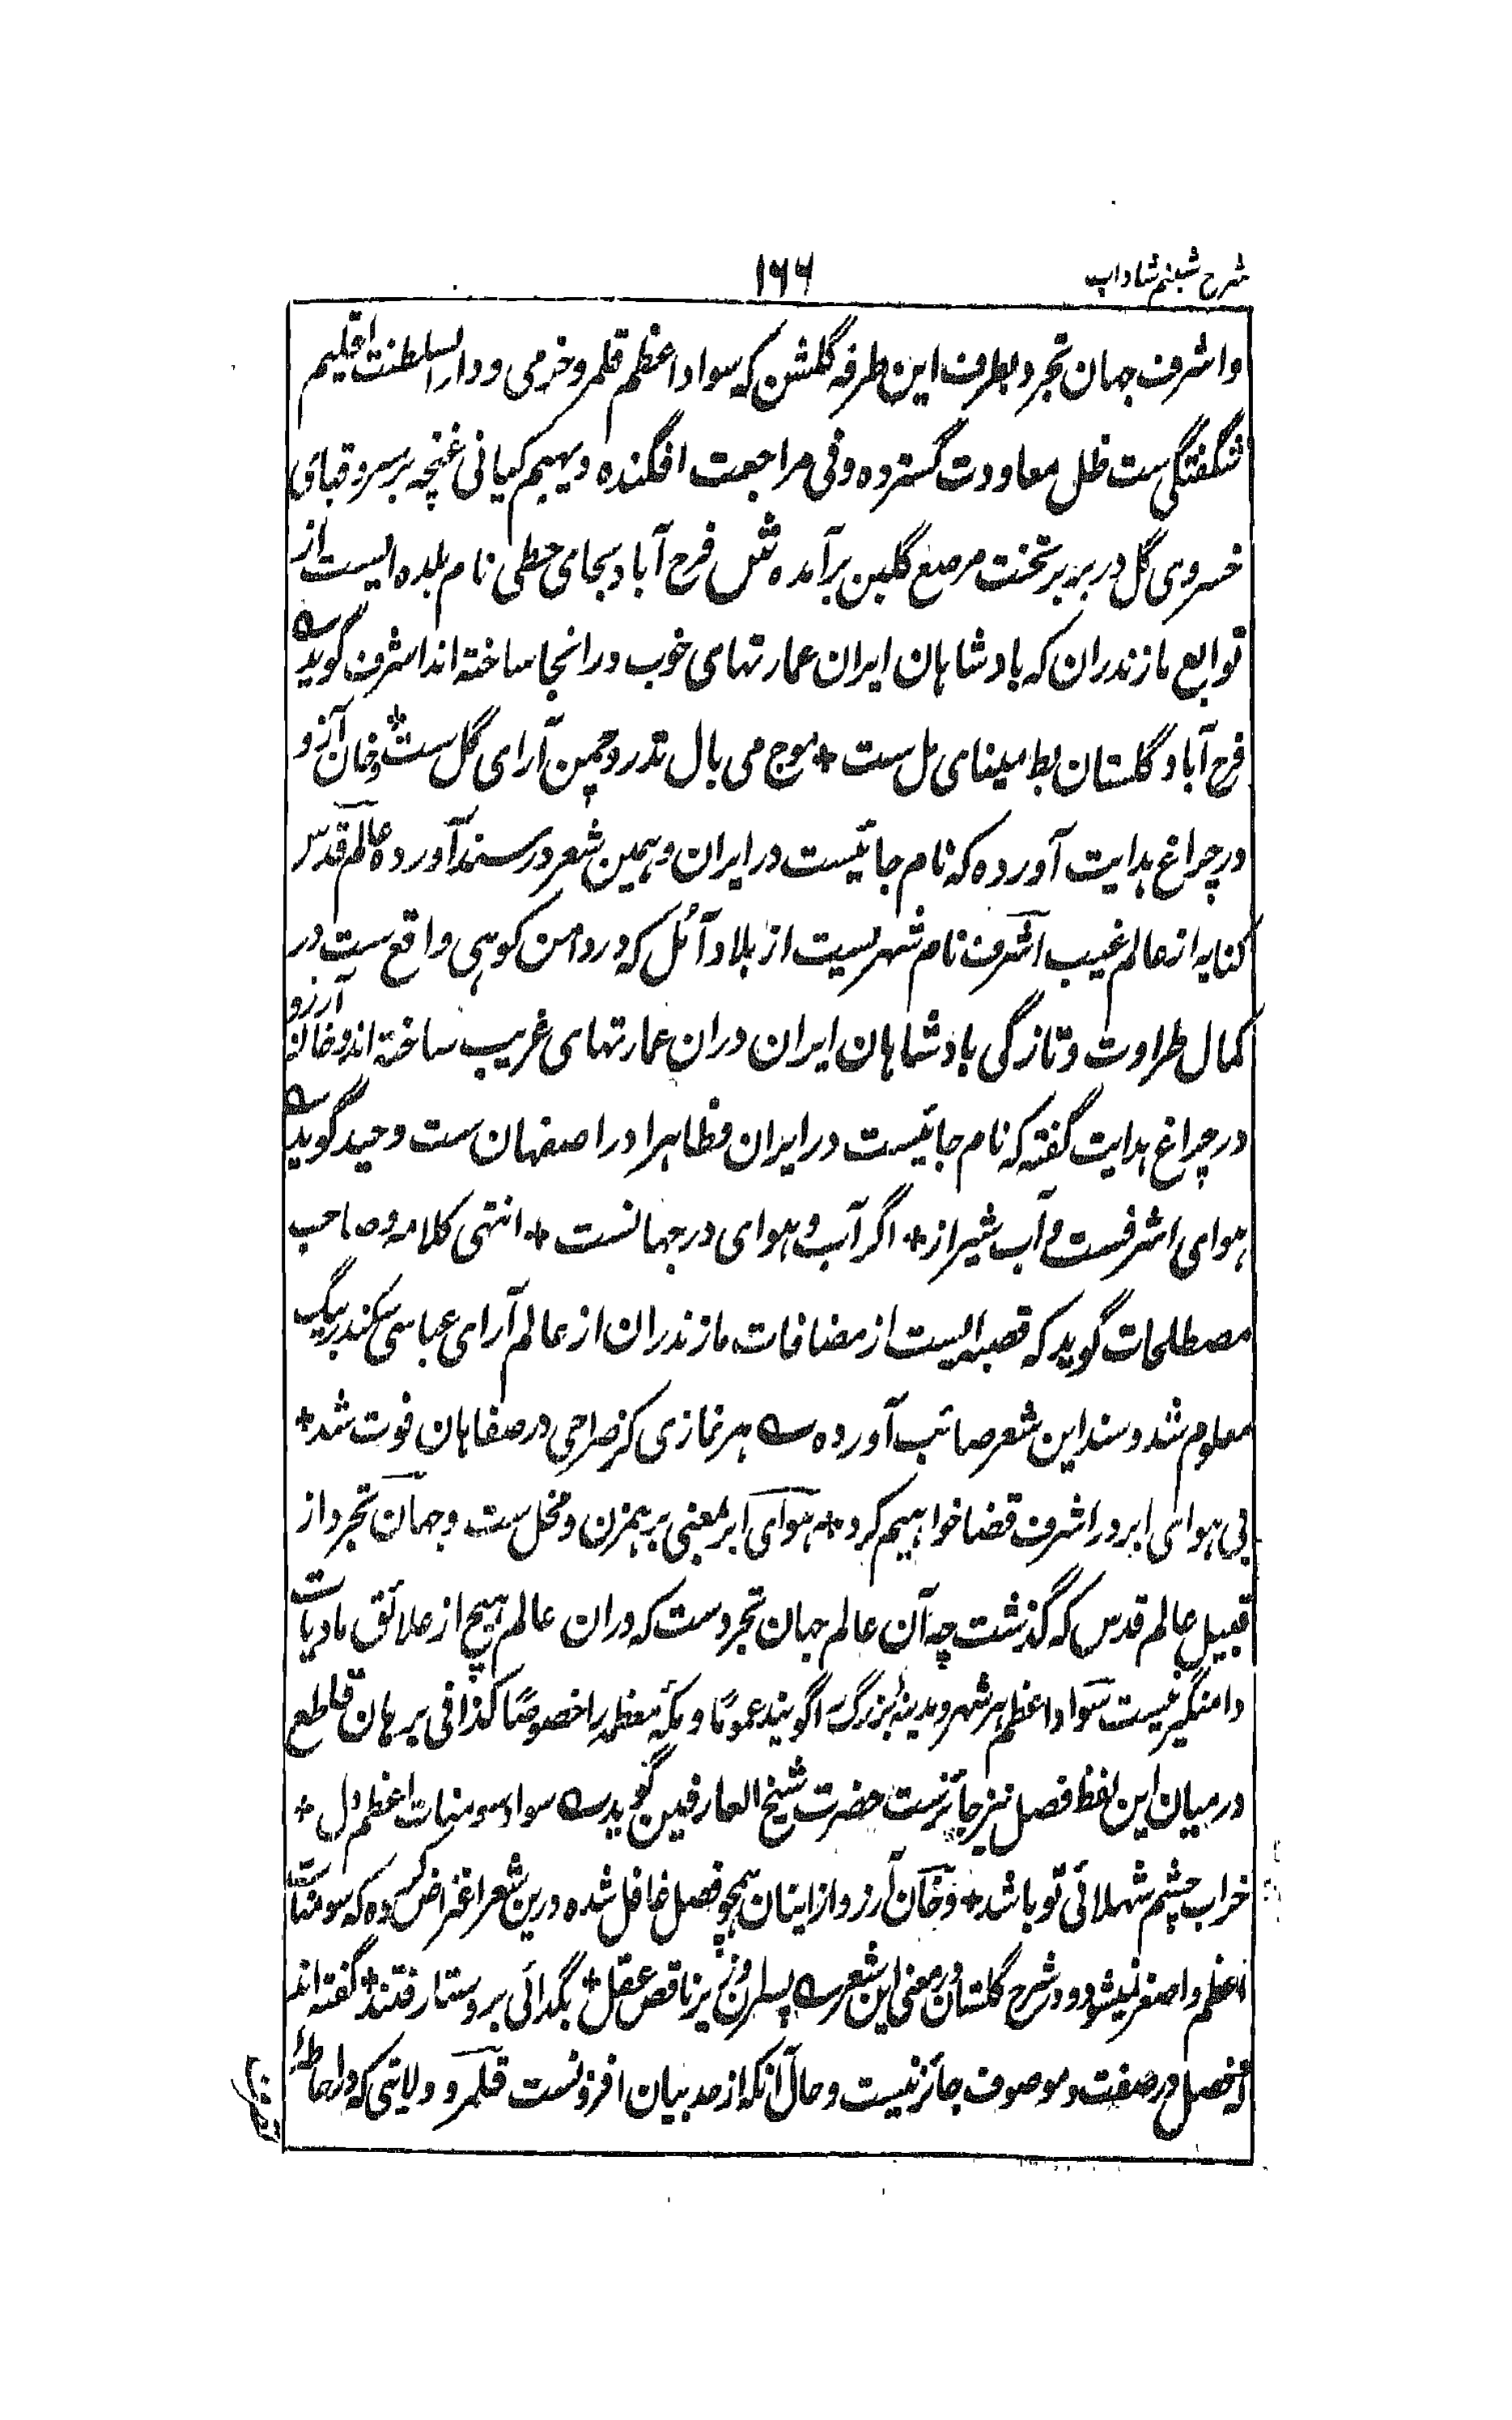 شرح شبنم شاداب
۱۶۶
و اشرف جهان تجرد بطرف این طرفه گلشن که سواد اعظم قلمرو خرمی و دار السلطنت اقلیم
شگفتگی ست ظل معاودت گسترده و فی مراجعت افگنده دیهیم کیانی غنچه بر سر و قبای
خسروی گل در بر بر تخت مرصع گلبن برآمده ش فرح آباد بجای حطی نام بلده ایست از
توابع مازندران که بادشاهان ایران عمارتهای خوب درانجا ساخته اند اشرف گوید ؎
فرح آباد گلستان بط مینای مل ست + موج می بال تدرو چمن آرای گل ست + و خان آرزو
در چراغ هدایت آورده که نام جائیست در ایران و همین شعر در سند آورده عالم قدس
کنایه از عالم غیب اشرف نام شهریست از بلاد آمل که در دامن کوهی واقع ست در
کمال طراوت و تازگی بادشاهان ایران دران عمارتهای غریب ساخته اند و خان آرزو
در چراغ هدایت گفته که نام جائیست در ایران و ظاهرا در اصفهان ست وحید گوید ؎
هوای اشرفست و آب شیراز + اگر آب و هوای در جهانست + انتهی کلامه و صاحب
مصطلحات گوید که قصبه ایست از مضافات مازندران از عالم آرای عباسی سکندر بیگ
معلوم شد و سند این شعر صائب آورده ؎ هر نمازی کز صراحی در صفاهان فوت شد +
بی هوای ابر در اشرف قضا خواهیم کرد + هوای ابر بمعنی برهمزن و مخل ست و جهان تجرد از
قبیل عالم قدس که گذشت چه آن عالم جهان تجردست که دران عالم هیچ از علائق مادیات
دامنگیر نیست سواد اعظم هر شهر و مدینهٔ بزرگ را گویند عموماً و مکهٔ معظمه را خصوصاً کذا فی برهان قاطع
در میان این لفظ فصل نیز جائزست حضرت شیخ العارفین گوید ؎ سواد سومنات اعظم دل +
خراب چشم شهلائی تو باشد + و خان آرزو از اینان همچو فصل غافل شده درین شعر اعتراض کرده که سومنات
اعظم و اصغر نمیشود و در شرح گلستان در معنی این شعر ؎ پسران وزیر ناقص عقل + بگدائی بروستا رفتند + گفته اند
که فصل در صفت و موصوف جائز نیست و حال آنکه از حد بیان افزونست قلمرو ولایتی که در احاطهٔ